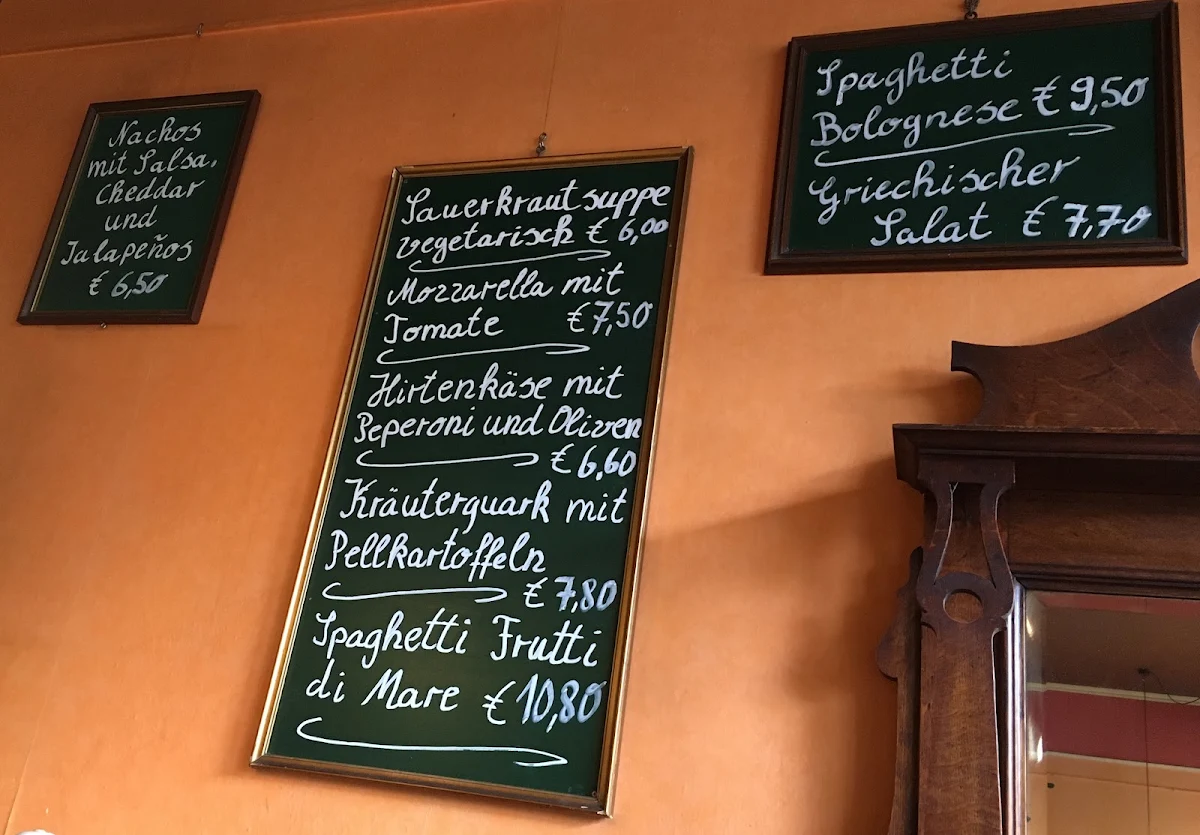 Nachos
mit Salsa,
Cheddar
und
Jalapeños
€ 6,50
Sauerkrautsuppe
vegetarisch € 6,00
Mozzarella mit
Tomate € 7,50
Hirtenkäse mit
Peperoni und Oliven
€ 6,60
Kräuterquark mit
Pellkartoffeln
€ 7,80
Spaghetti Frutti
di Mare € 10,80
Spaghetti
Bolognese € 9,50
Griechischer
Salat € 7,70